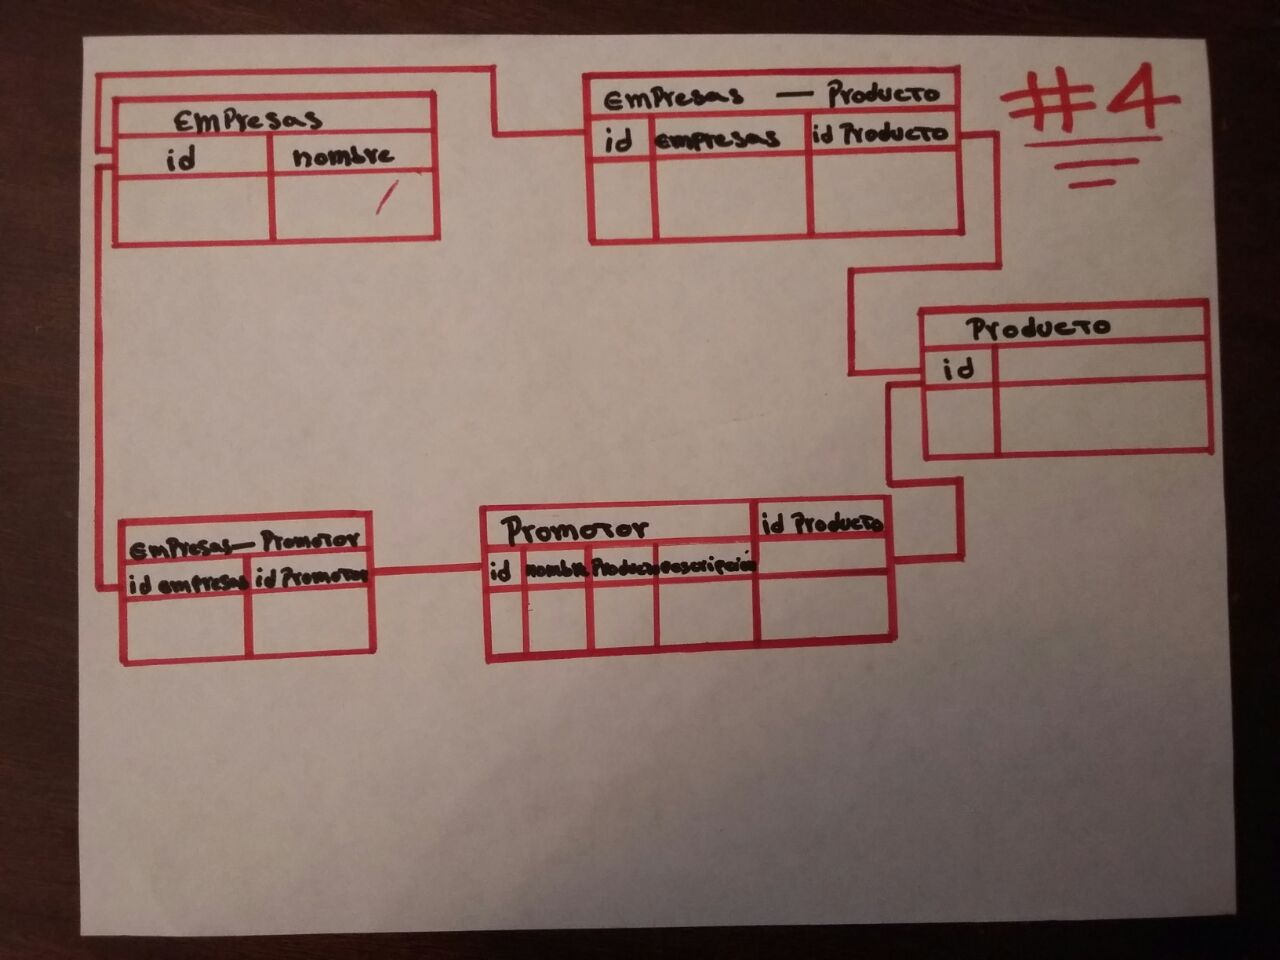 Empresas
id nombre
Empresas — Producto
id empresas id Producto
#4
Producto
id
Empresas — Promotor
id empresas id Promotor
Promotor id Producto
id nombre Producto Descripción